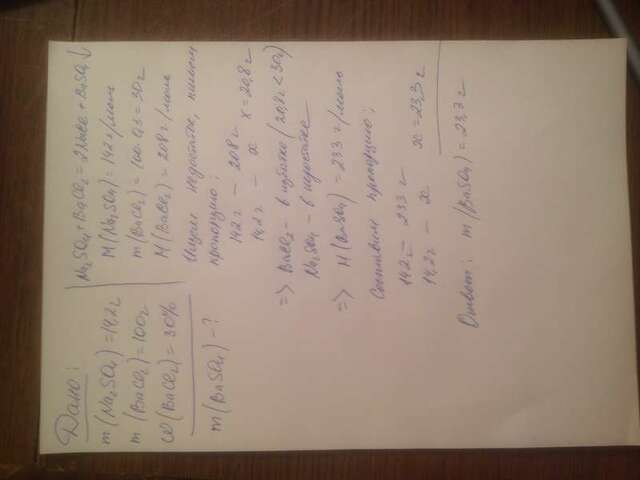 Дано:
m(Na₂SO₄)=14,2г
m(BaCl₂)=100г
ω(BaCl₂)=30%
m(BaSO₄)-?
Na₂SO₄+BaCl₂=2NaCl+BaSO₄↓
M(Na₂SO₄)=142г/моль
m(BaCl₂)=100·0,3=30г
M(BaCl₂)=208г/моль
Ищем недостаток, пишем
пропорцию:
142г – 208г
14,2г – x x=20,8г
=> BaCl₂ – в избытке (20,8г<30г)
Na₂SO₄ – в недостатке
=> M(BaSO₄) = 233 г/моль
Составим пропорцию:
142г – 233г
14,2г – x x=23,3г
Ответ: m(BaSO₄)=23,3г